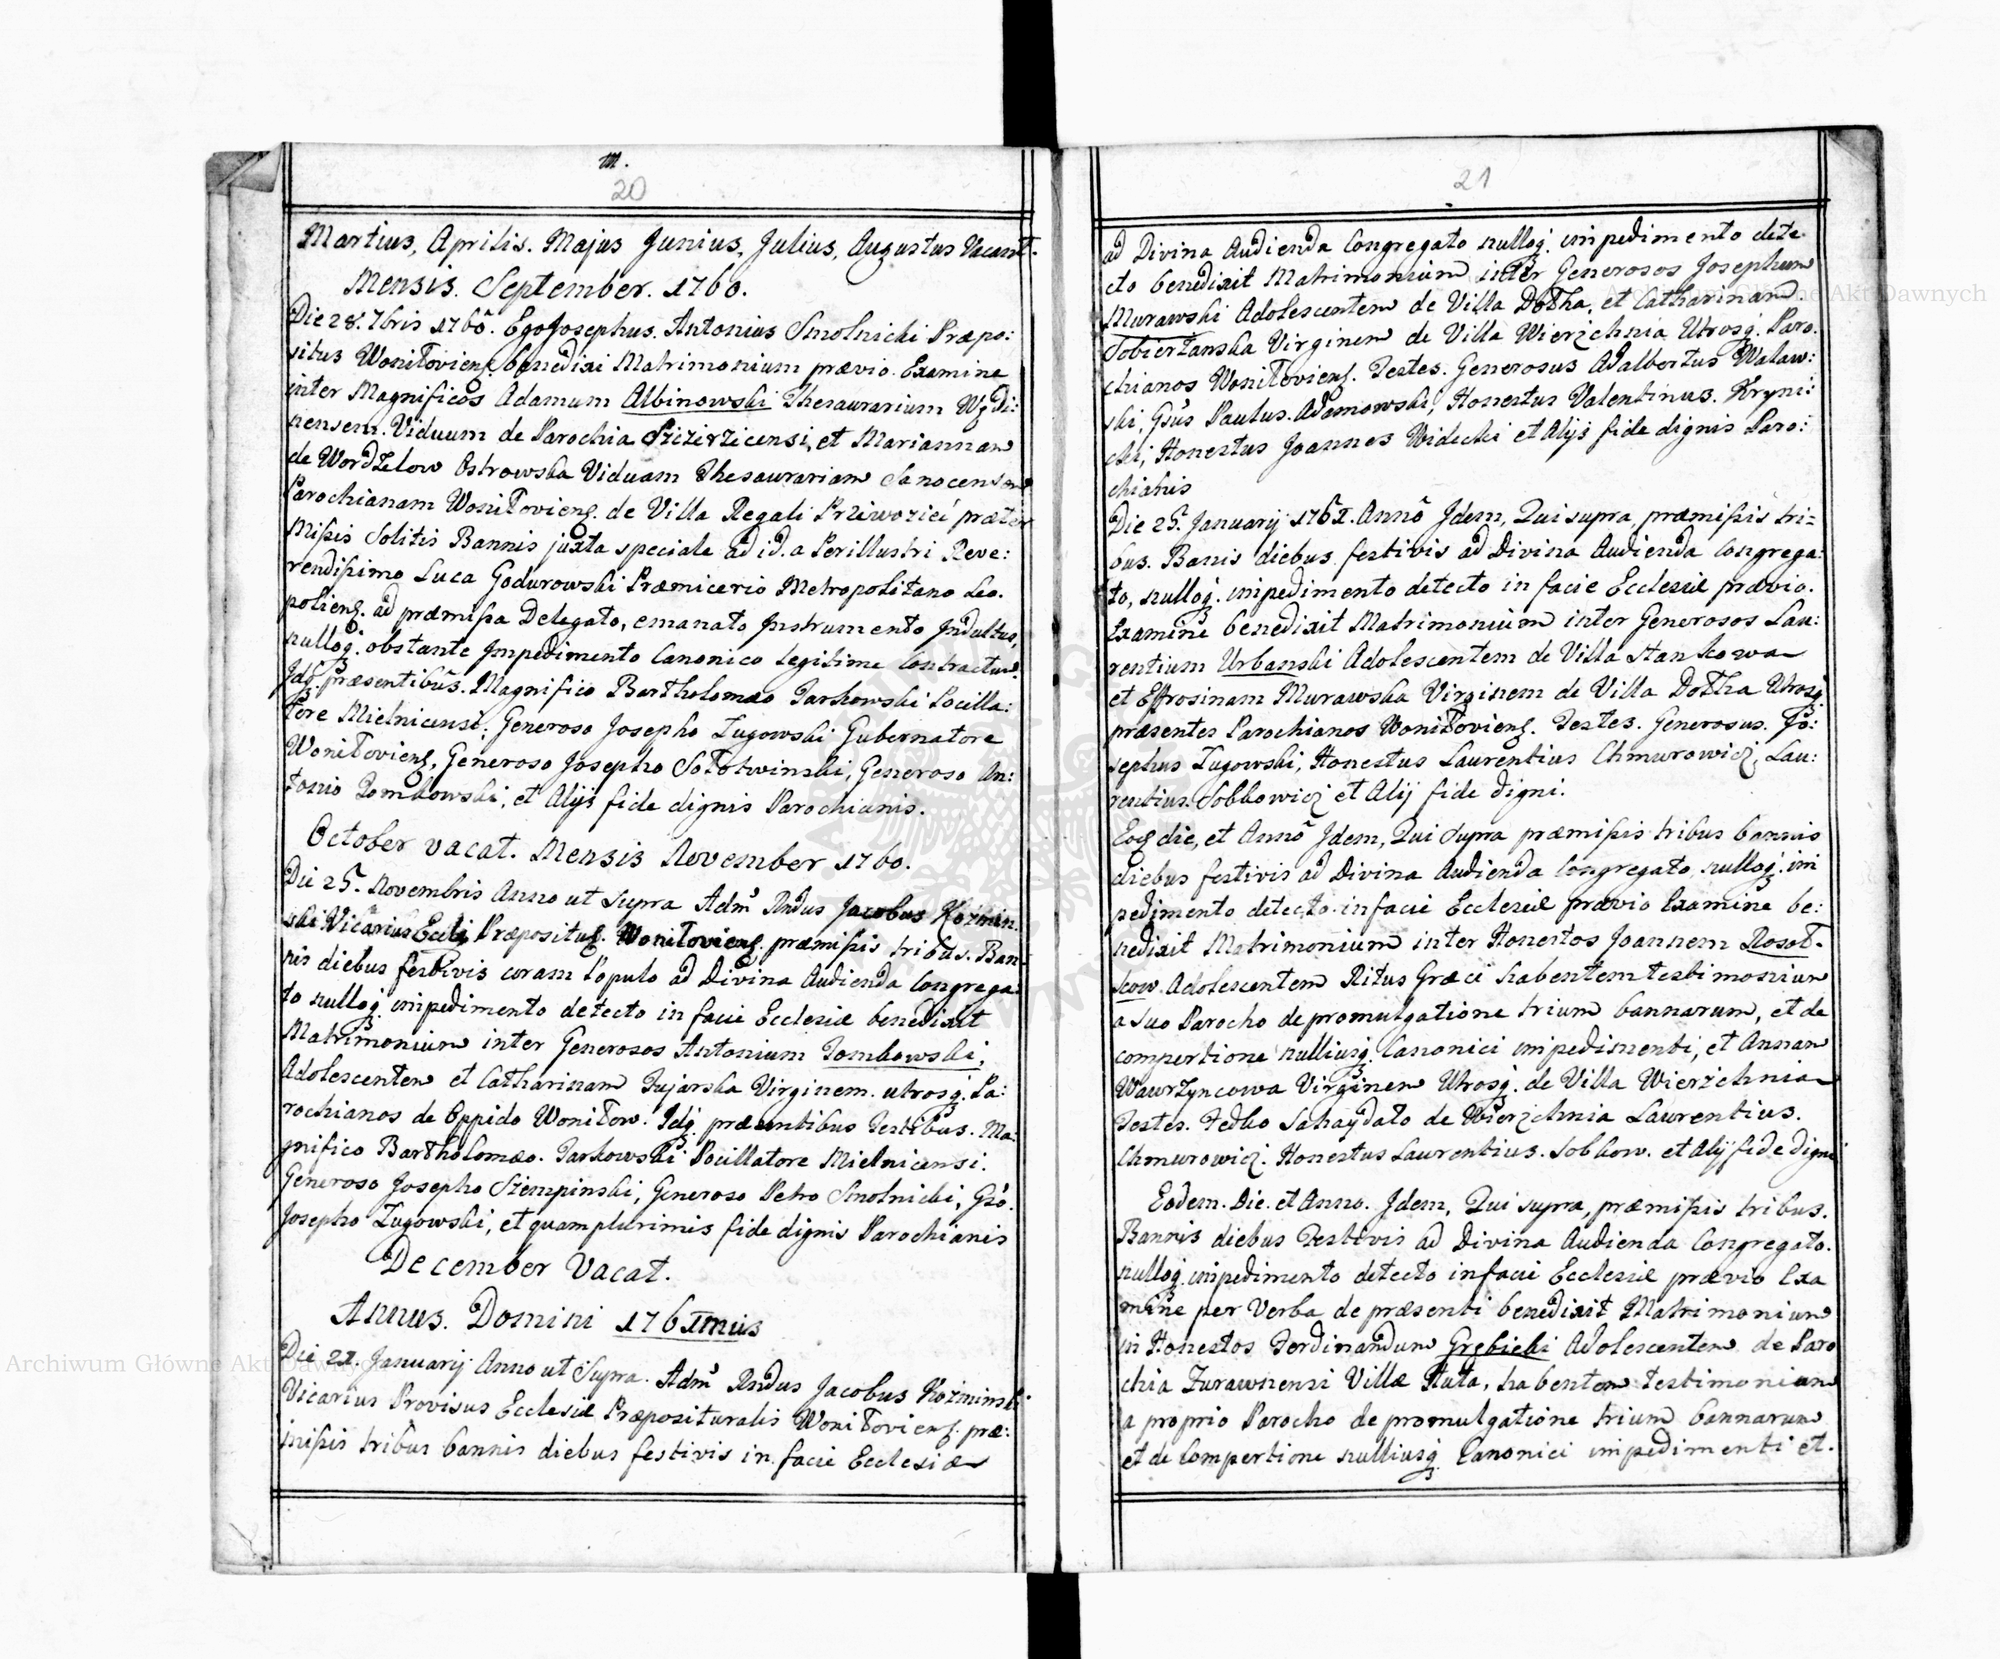 m.
20
Martius, Aprilis. Majus Junius, Julius, Augustus Vacant.
Mensis. September. 1760.
Die 28. 7bris 1760. Ego Josephus. Antonius Smolnicki Præpo:
situs Woniłoviens. benedixi Matrimonium prævio Examine
inter Magnificos Adamum Albinowski Thesaurarium Wzdi:
nensem. Viduum de Parochia et Mariannam
de Wordzelow Ostrowska Viduam Thesaurariam Sanocensem
Parochianam Woniłoviens. de Villa Regali præter
Missis Solitis Bannis juxta speciale ad id. a Perillustri Reve:
rendissimo Luca Godurowski Præmicerio Metropolitano Leo.
poliens. ad præmissa Delegato, emanato Instrumento Indultus,
nulloq. obstante Impedimento Canonico Legitime Contractum.
Idq. præsentibus. Magnifico Bartholomæo Jarkowski Pocilla:
tore Mielnicensi, Generoso Josepho Zugowski Gubernatore
Woniłoviens, Generoso Josepho Sołotwinski, Generoso An:
tonio Dombowski, et Alijs fide dignis Parochianis.
October vacat. Mensis November 1760.
Die 25. Novembris Anno ut Supra Adm Rndus Jacobus Kozmin
ski Vicarius Eccli Præpositus. Woniłoviens. præmissis tribus. Ban
nis diebus festivis coram Populo ad Divina Audienda Congrega
to nulloq. impedimento detecto in facie Ecclesiæ benedixit
Matrimonium inter Generosos Antonium Dombowski,
Adolescentem et Catharinam Jujarska Virginem. utrosq. Pa:
rochianos de Oppido Woniłow. Idq. præsentibus Testibus. Ma
gnifico Bartholomæo. Jarkowski Pocillatore Mielnicensi.
Generoso Josepho Stempinski, Generoso Petro Smolnicki, Gso.
Josepho Zugowski, et quam plurimis fide dignis Parochianis
December Vacat.
Annus. Domini 1761mus
Die 21. Januarij Anno ut Supra. Adm Rndus Jacobus Kozminski
Vicarius Provisus Ecclesiæ Præposituralis Woniłoviens. præ:
missis tribus bannis diebus festivis in facie Ecclesiæ
21
ad Divina Audienda Congregato nulloq. impedimento dete
cto benedixit Matrimonium inter Generosos Josephum
Murawski Adolescentem de Villa Dołha, et Catharinam
Sobierłanska Virginem de Villa Wierzchnia Utrosq. Paro.
chianos Woniłoviens. Testes. Generosus Adalbertus Walaw:
ski, Gsus Paulus. Adamowski, Honestus Valentinus. Kryni:
cki, Honestus Joannes Widecki et Alijs fide dignis Paro:
chianis
Die 25. Januarij 1761. Anno Idem, Qui supra, præmissis tri=
bus. Banis diebus festivis ad Divina Audienda Congrega:
to, nulloq. impedimento detecto in facie Ecclesiæ prævio.
Examine benedixit Matrimonium inter Generosos Lau:
rentium Urbanski Adolescentem de Villa Stankowa
et Effrosinam Murawska Virginem de Villa Dołha Utrosq.
præsentes Parochianos Woniłoviens. Testes. Generosus. Jo:
sephus Zugowski, Honestus Laurentius Chmurowicz, Lau:
rentius. Sobkowicz et Alij fide digni.
Eod die, et Anno Idem, Qui Supra præmissis tribus bannis
diebus festivis ad Divina Audienda Congregato nulloq. im
pedimento detecto in facie Ecclesiæ prævio Examine be:
nedixit Matrimonium inter Honestos Joannem Rosoł.
kow. Adolescentem Ritus Græci habentem testimonium
a suo Parocho de promulgatione trium bannarum, et de
compertione nulliusq. Canonici impedimenti, et Annam
Wawrzyncowa Virginem Utrosq. de Villa Wierzchnia
Testes. Fedko Sahaydało de Wierzchnia Laurentius.
Chmurowicz. Honestus Laurentius. Sobkow. et Alij fide digni
Eodem. Die. et Anno. Idem, Qui supra, præmissis tribus.
Bannis diebus Festivis ad Divina Audienda Congregato.
nulloq. impedimento detecto in facie Ecclesiæ prævio Exa
mine per Verba de præsenti benedixit Matrimonium
in Honestos Ferdinandum Grębicki Adolescentem de Paro
chia Zurawnensi Villæ Huta, habentem Testimonium
a proprio Parocho de promulgatione trium bannarum
et de Compertione nulliusq. Canonici impedimenti et.
Archiwum Główne Akt Dawnych
Archiwum Główne Akt Dawnych